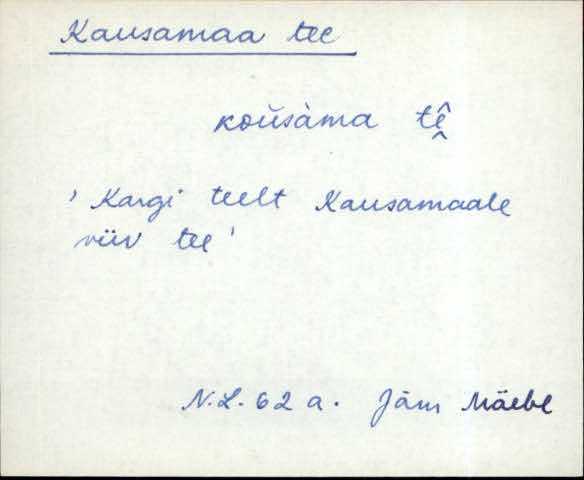 Kausamaa tee
koùsàma tê̬
' Kargi teelt Kausamaale
viiv tee '
N.L. 62 a. Jäm Mäebe